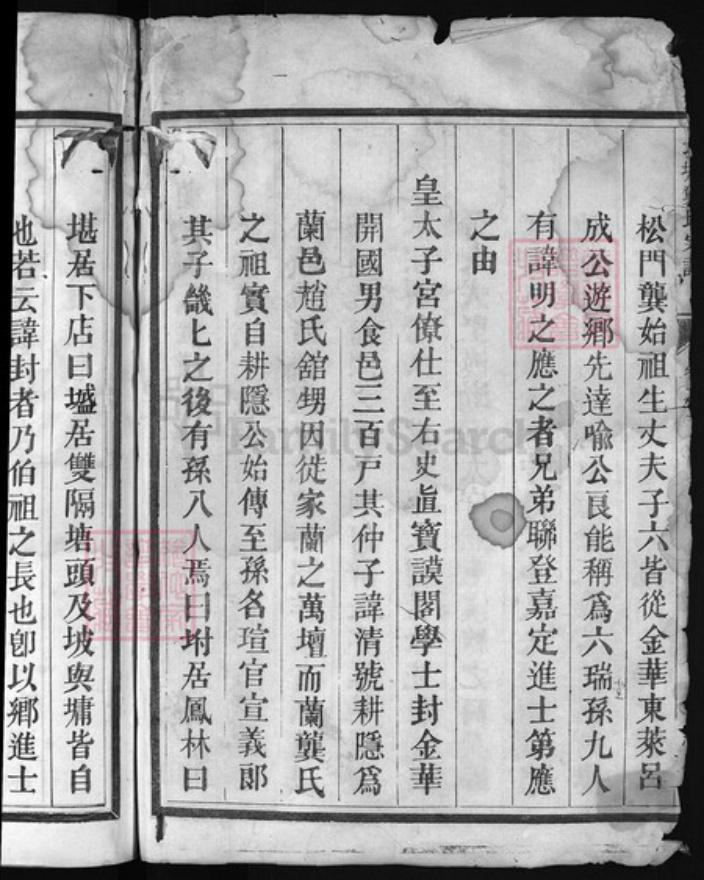 松門龔始祖生丈夫子六皆從金華東萊呂
成公遊鄉先達喻公良能稱爲六瑞孫九人
有諱明之應之者兄弟聯登嘉定進士第應
之由
皇太子宮僚仕至右史直寶謨閣學士封金華
開國男食邑三百戸其仲子諱清號耕隱爲
蘭邑趙氏舘甥因徙家蘭之萬壇而蘭龔氏
之祖實自耕隱公始傳至孫名瑄官宣義郎
其子畿七之後有孫八人焉曰坿居鳳林曰
堪居下店曰壚居雙隔塘頭及坡與墉皆自
也若云諱封者乃伯祖之長也卽以鄉進士
FamilySearch